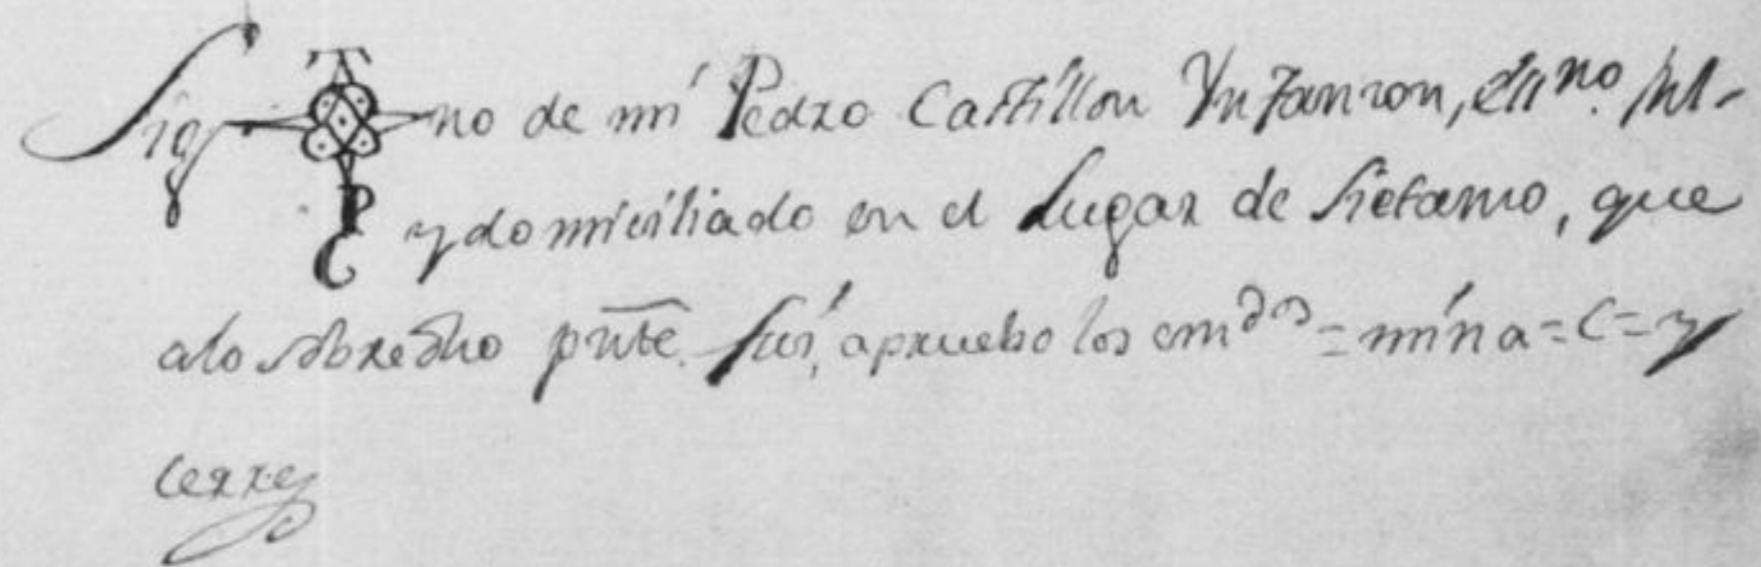 Sig no de mí Pedro Castillon Ynfanzon, ess.no pu-
P y domiciliado en el Lugar de Sietamo, que
C
alo sobredho pnte. fuí, apruebo los emdos = mína = C = y
cerre